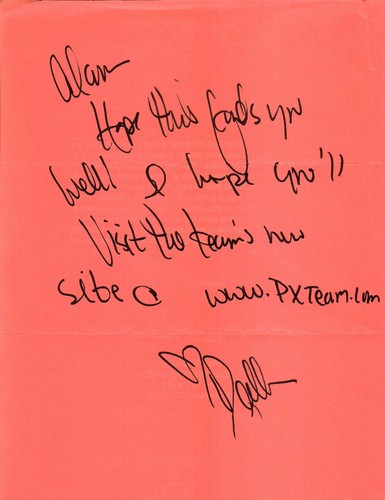 Alan
Hope this finds you
well! I hope you'll
Visit the team's new
site @ www.PXTeam.com